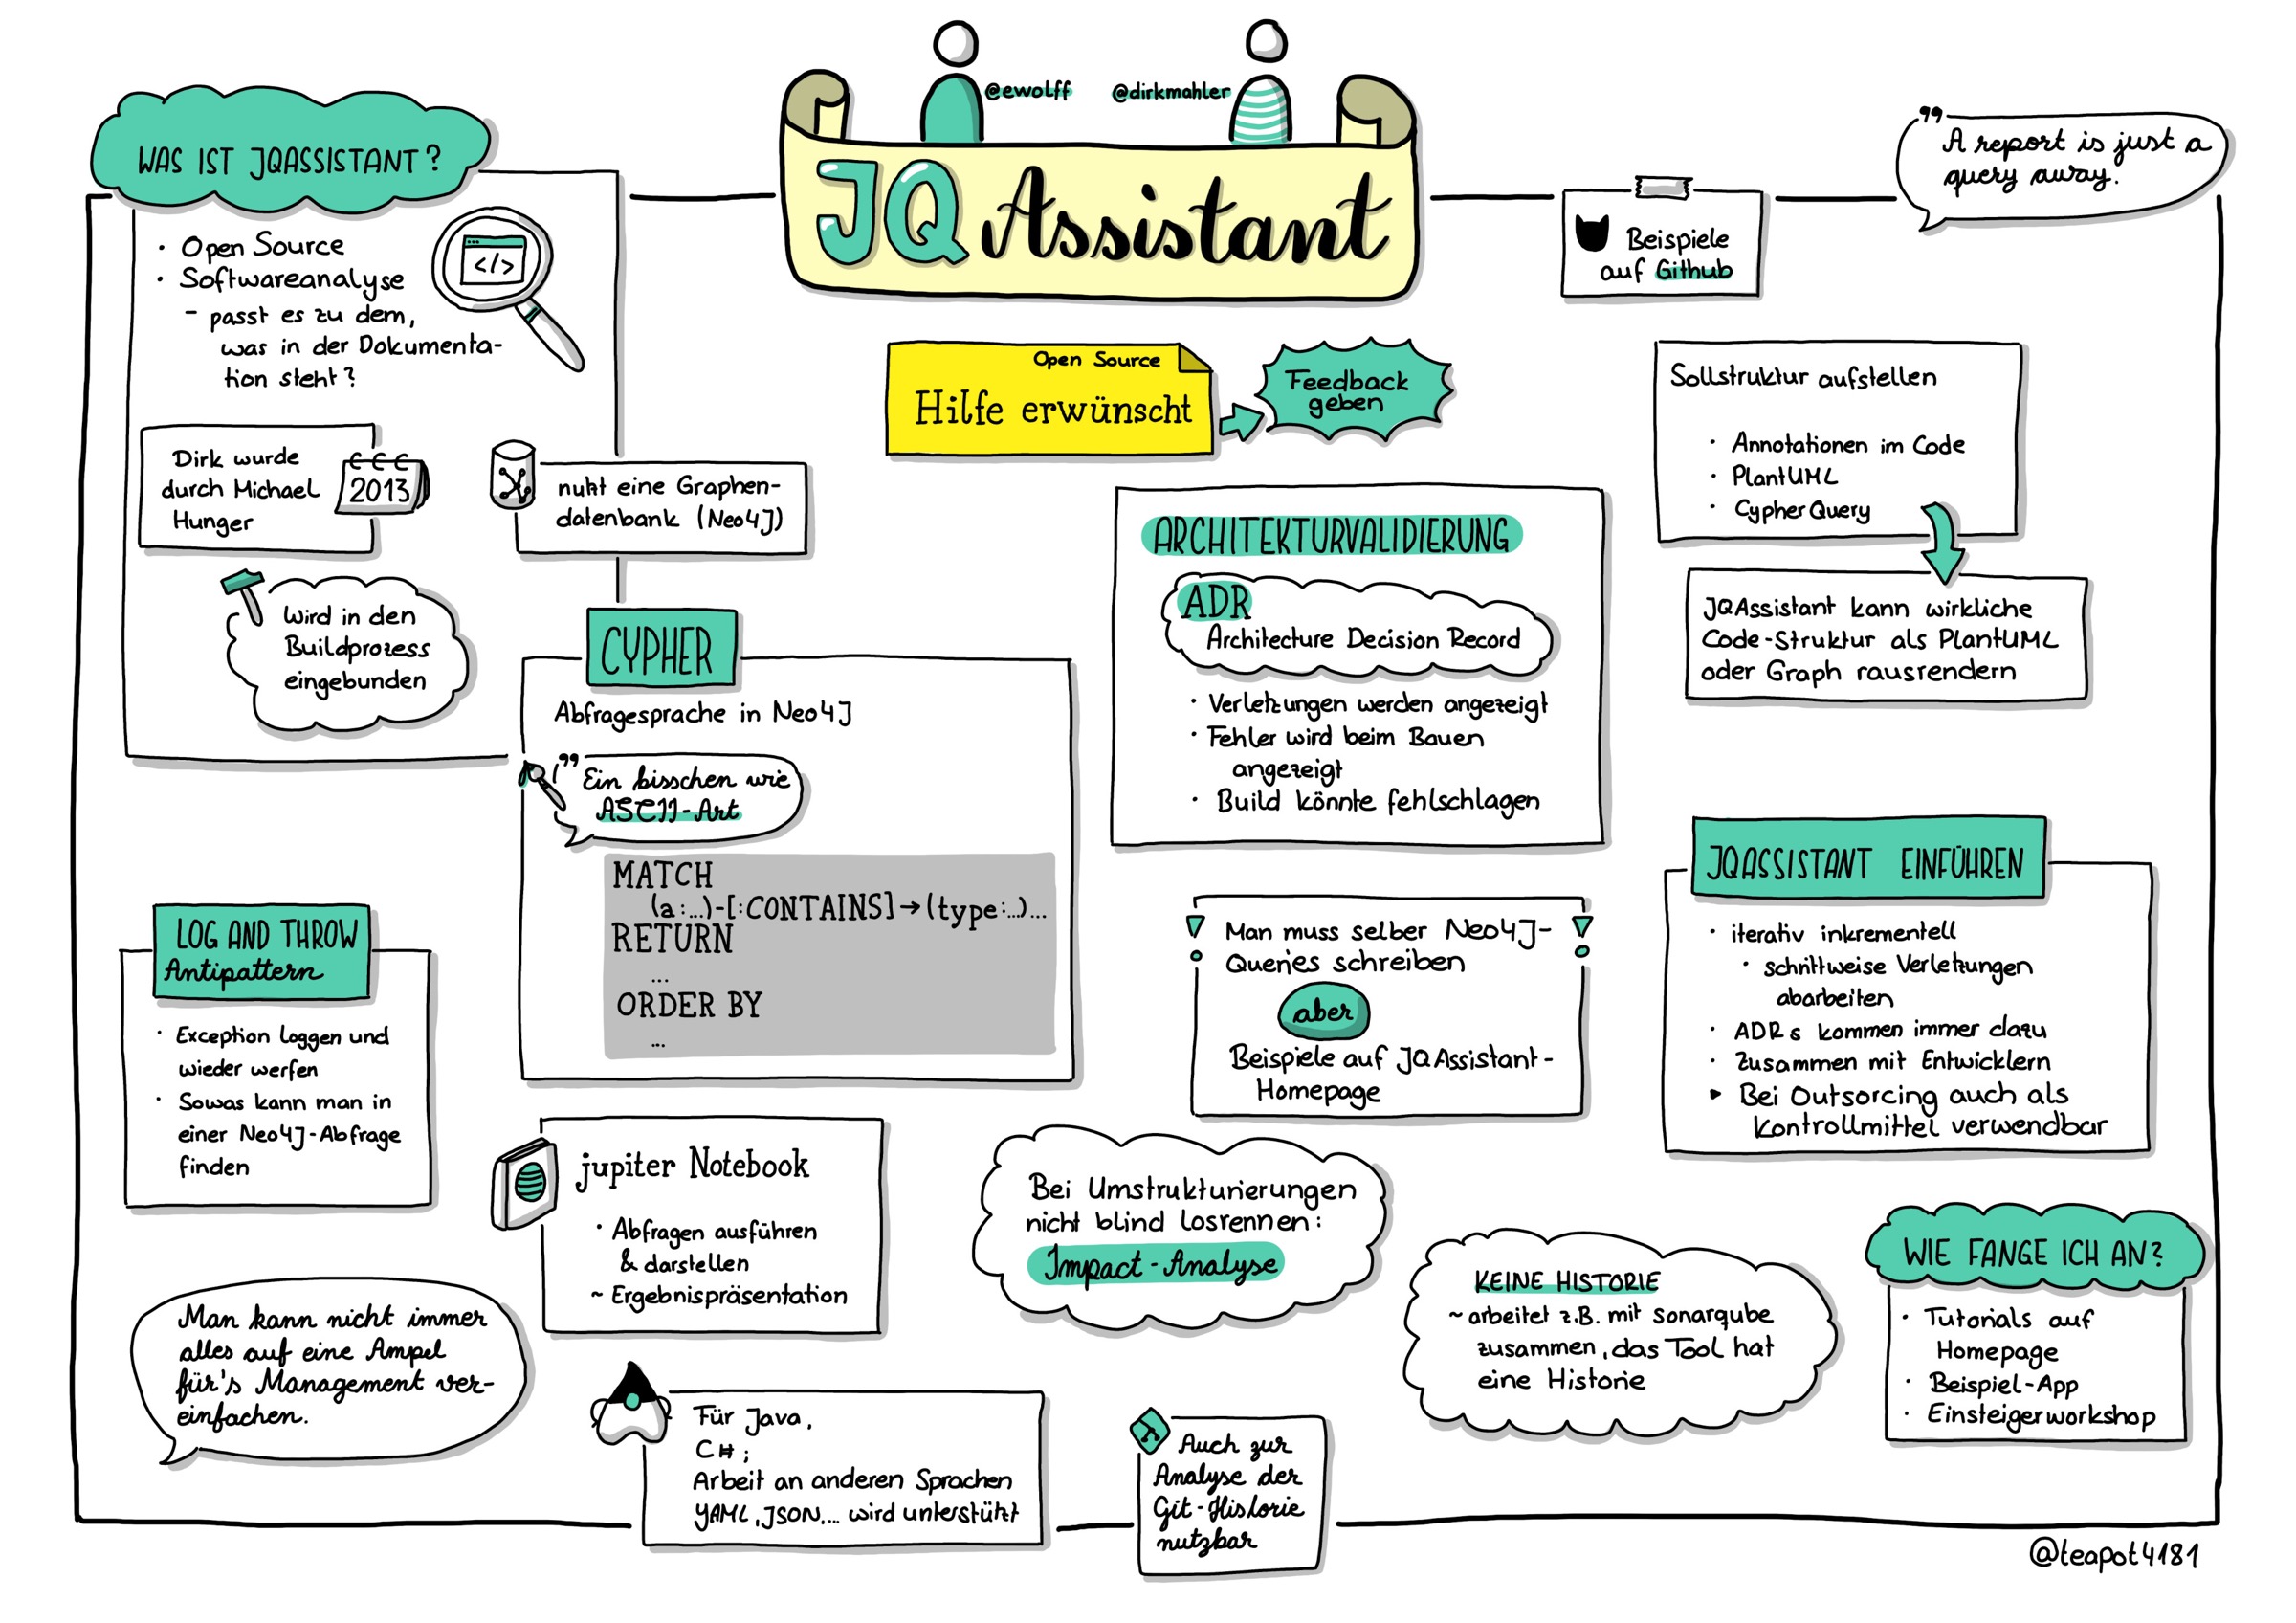 @ewolff
@dirkmahler
JQ Assistant
WAS IST JQASSISTANT?
• Open Source
• Softwareanalyse
- passt es zu dem,
was in der Dokumenta-
tion steht?
</>
Dirk wurde
durch Michael
Hunger
2013
nutzt eine Graphen-
datenbank (Neo4J)
Wird in den
Buildprozess
eingebunden
" A report is just a
query away.
Beispiele
auf Github
Open Source
Hilfe erwünscht
Feedback
geben
Sollstruktur aufstellen
• Annotationen im Code
• PlantUML
• Cypher Query
JQAssistant kann wirkliche
Code-Struktur als PlantUML
oder Graph rausrendern
CYPHER
Abfragesprache in Neo4J
" Ein bisschen wie
ASCII-Art
MATCH
(a:...)-[:CONTAINS]→(type:...)...
RETURN
...
ORDER BY
...
ARCHITEKTURVALIDIERUNG
ADR
Architecture Decision Record
• Verletzungen werden angezeigt
• Fehler wird beim Bauen
angezeigt
• Build könnte fehlschlagen
! Man muss selber Neo4J- !
Queries schreiben
aber
Beispiele auf JQAssistant-
Homepage
JQASSISTANT EINFÜHREN
• iterativ inkrementell
• schrittweise Verletzungen
abarbeiten
• ADRs kommen immer dazu
• Zusammen mit Entwicklern
▸ Bei Outsorcing auch als
Kontrollmittel verwendbar
LOG AND THROW
Antipattern
• Exception loggen und
wieder werfen
• Sowas kann man in
einer Neo4J-Abfrage
finden
jupiter Notebook
• Abfragen ausführen
& darstellen
~ Ergebnispräsentation
Bei Umstrukturierungen
nicht blind losrennen:
Impact-Analyse
KEINE HISTORIE
~ arbeitet z.B. mit sonarqube
zusammen, das Tool hat
eine Historie
WIE FANGE ICH AN?
• Tutorials auf
Homepage
• Beispiel-App
• Einsteigerworkshop
Man kann nicht immer
alles auf eine Ampel
für's Management ver-
einfachen.
Für Java,
C#;
Arbeit an anderen Sprachen
YAML, JSON,... wird unterstützt
Auch zur
Analyse der
Git-Historie
nutzbar
@teapot4181